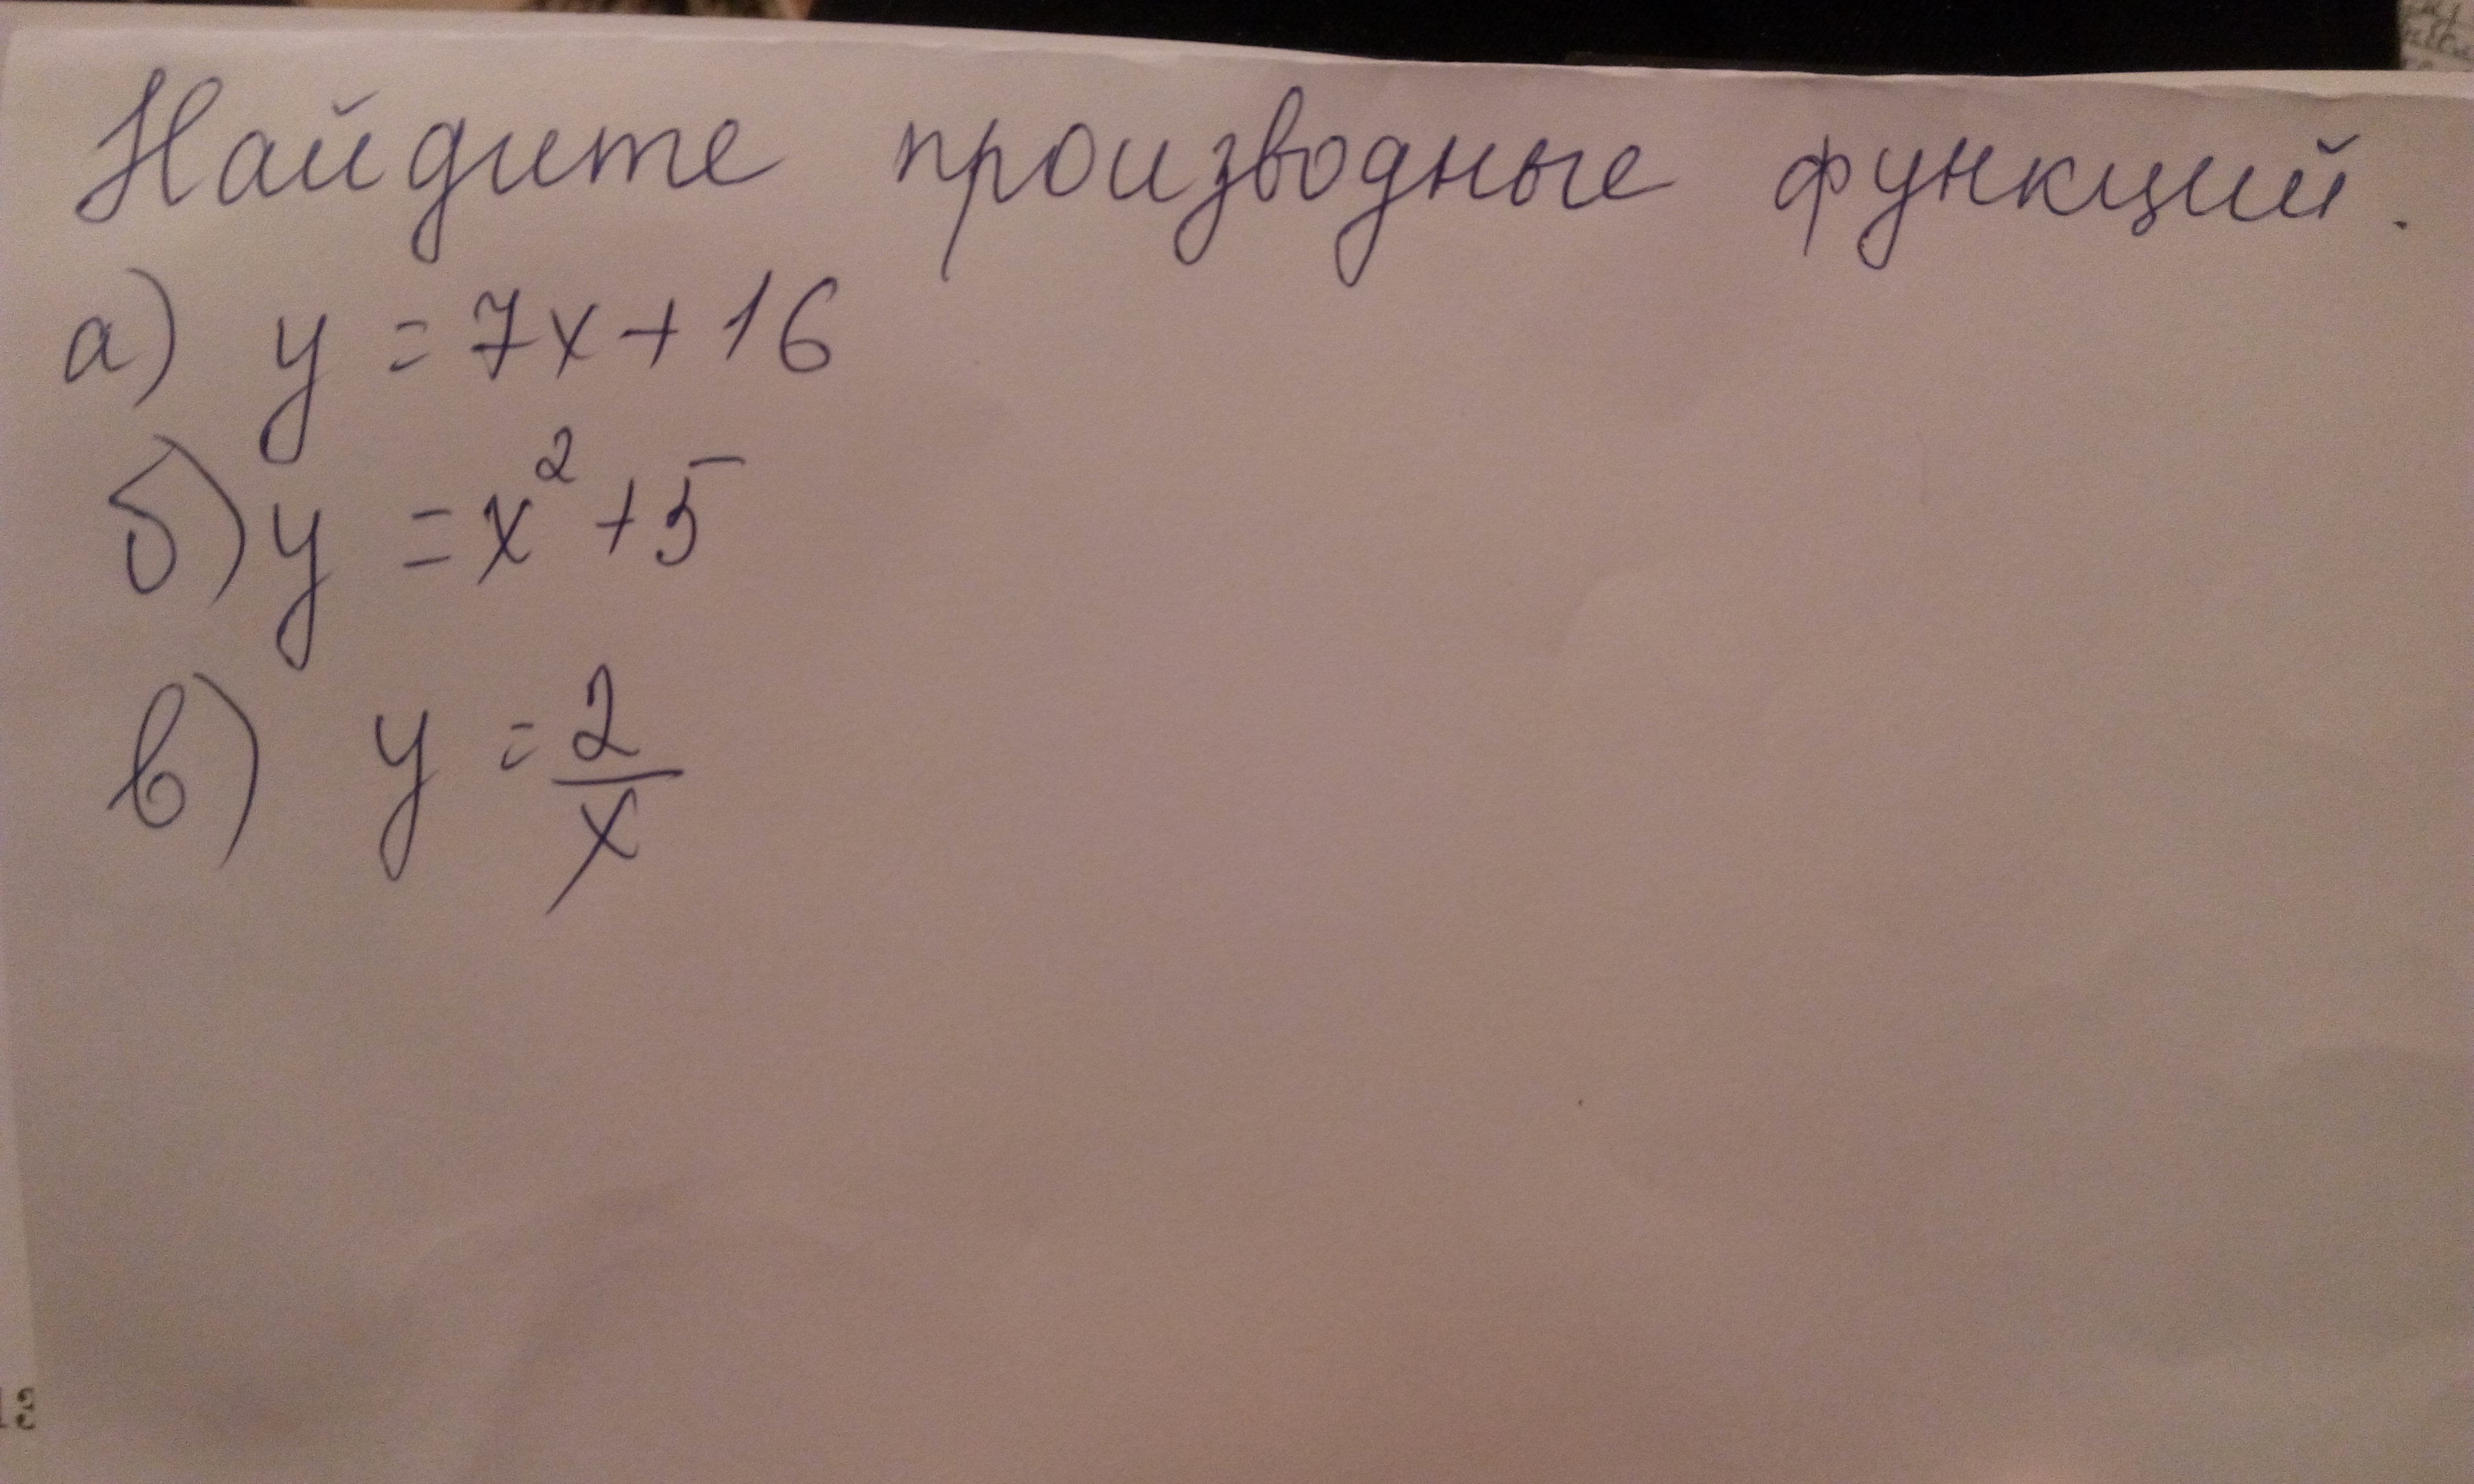 Найдите производные функций.
а) y = 7x + 16
б) y = x² + 5
в) y = 2/x